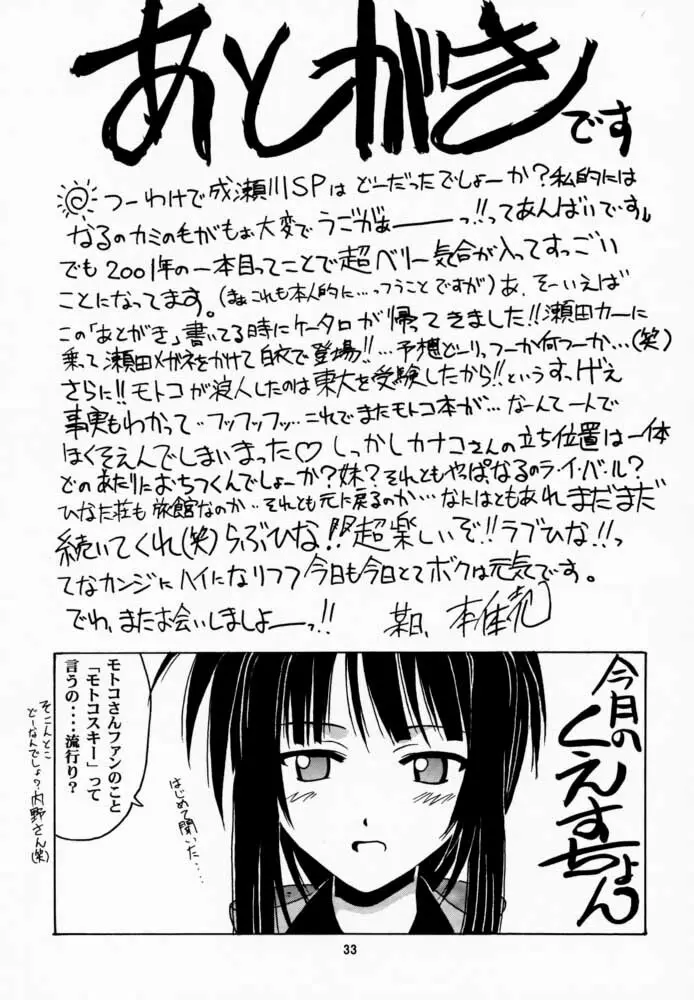 あとがき
です
つーわけで成瀬川SPは どーだったでしょーか?私的には
なるのカミの毛がもぉ大変で うごがぁーーっ!!ってあんばいです。
でも2001年の一本目ってことで超ベリー気合が入ってすっごい
ことになってます。(まぁこれも本人的に…っつうことですが)あ、そーいえば
この「あとがき」書いてる時にケータロが帰ってきました!!瀬田カーに
乗って瀬田メガネをかけて白衣で登場!!…予想どーりっつーか何つーか…(笑)
さらに!!モトコが浪人したのは東大を受験したから!!というすっげえ
事実もわかって‥フッフッフッ…これでまたモトコ本が…なーんて一人で
ほくそえんでしまいまった♡しっかしカナコさんの立ち位置は一体
どのあたりにおちつくんでしょーか?妹?それともやぱなるのラ・イ・バ・ル?
ひなた荘も旅館なのか‥それとも元に戻るのか…なにはともあれまだまだ
続いてくれ(笑)らぶひな!!超楽しいぞ!!ラブひな!!っ
てなカンジにハイになりつつ今日も今日とてボクは元気です。
でわ、またお会いしましょーっ!!
今月のくえすちょん
モトコさんファンのこと
「モトコスキー」って
言うの‥‥流行り?
はじめて聞いた…
そこんとこ
どーなんでしょ?内野さん(笑)
33